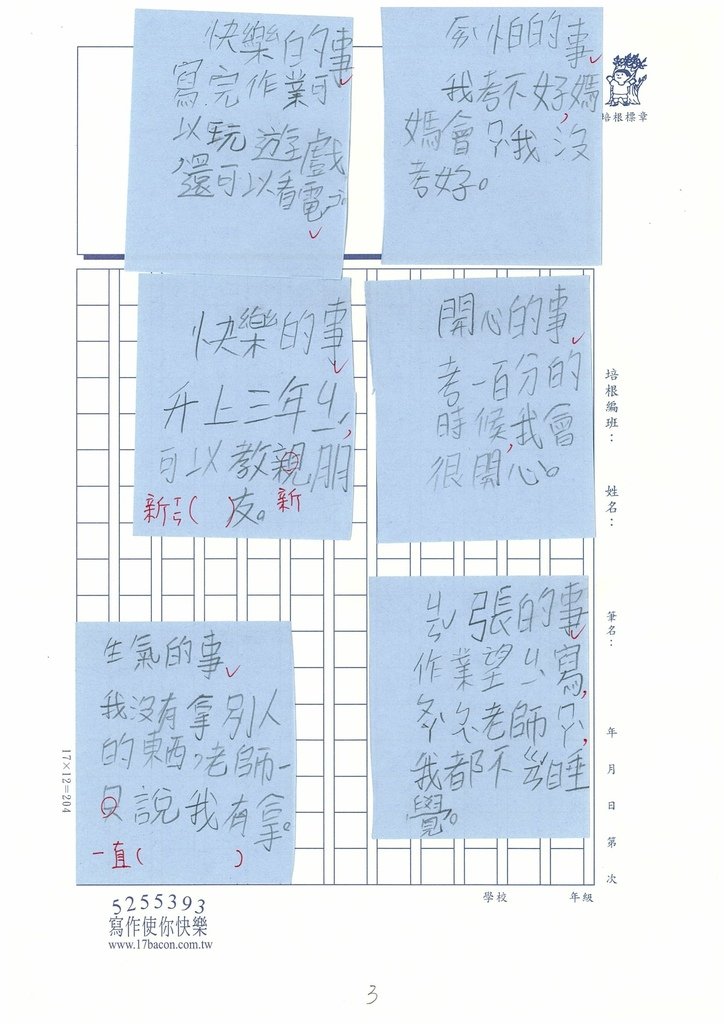 快樂的事
寫完作業可
以玩遊戲
,還可以看電ㄕˋ。
害怕的事
我考不好,媽
媽會ㄕㄨㄛ我沒
考好。
培根標章
快樂的事
升上三年ㄐㄧˊ,
可以教親朋
友。
新
新ㄒㄧㄣ( )
開心的事
考一百分的
時候,我會
很開心。
培根編班:
姓名:
生氣的事
我沒有拿別人
的東西,老師一
只說我有拿。
一直( )
張的事
作業望 寫,
老師
我都不 睡
覺。
筆名:
年 月 日 第 次
17×12=204
學校 年級
5255393
寫作使你快樂
www.17bacon.com.tw
3